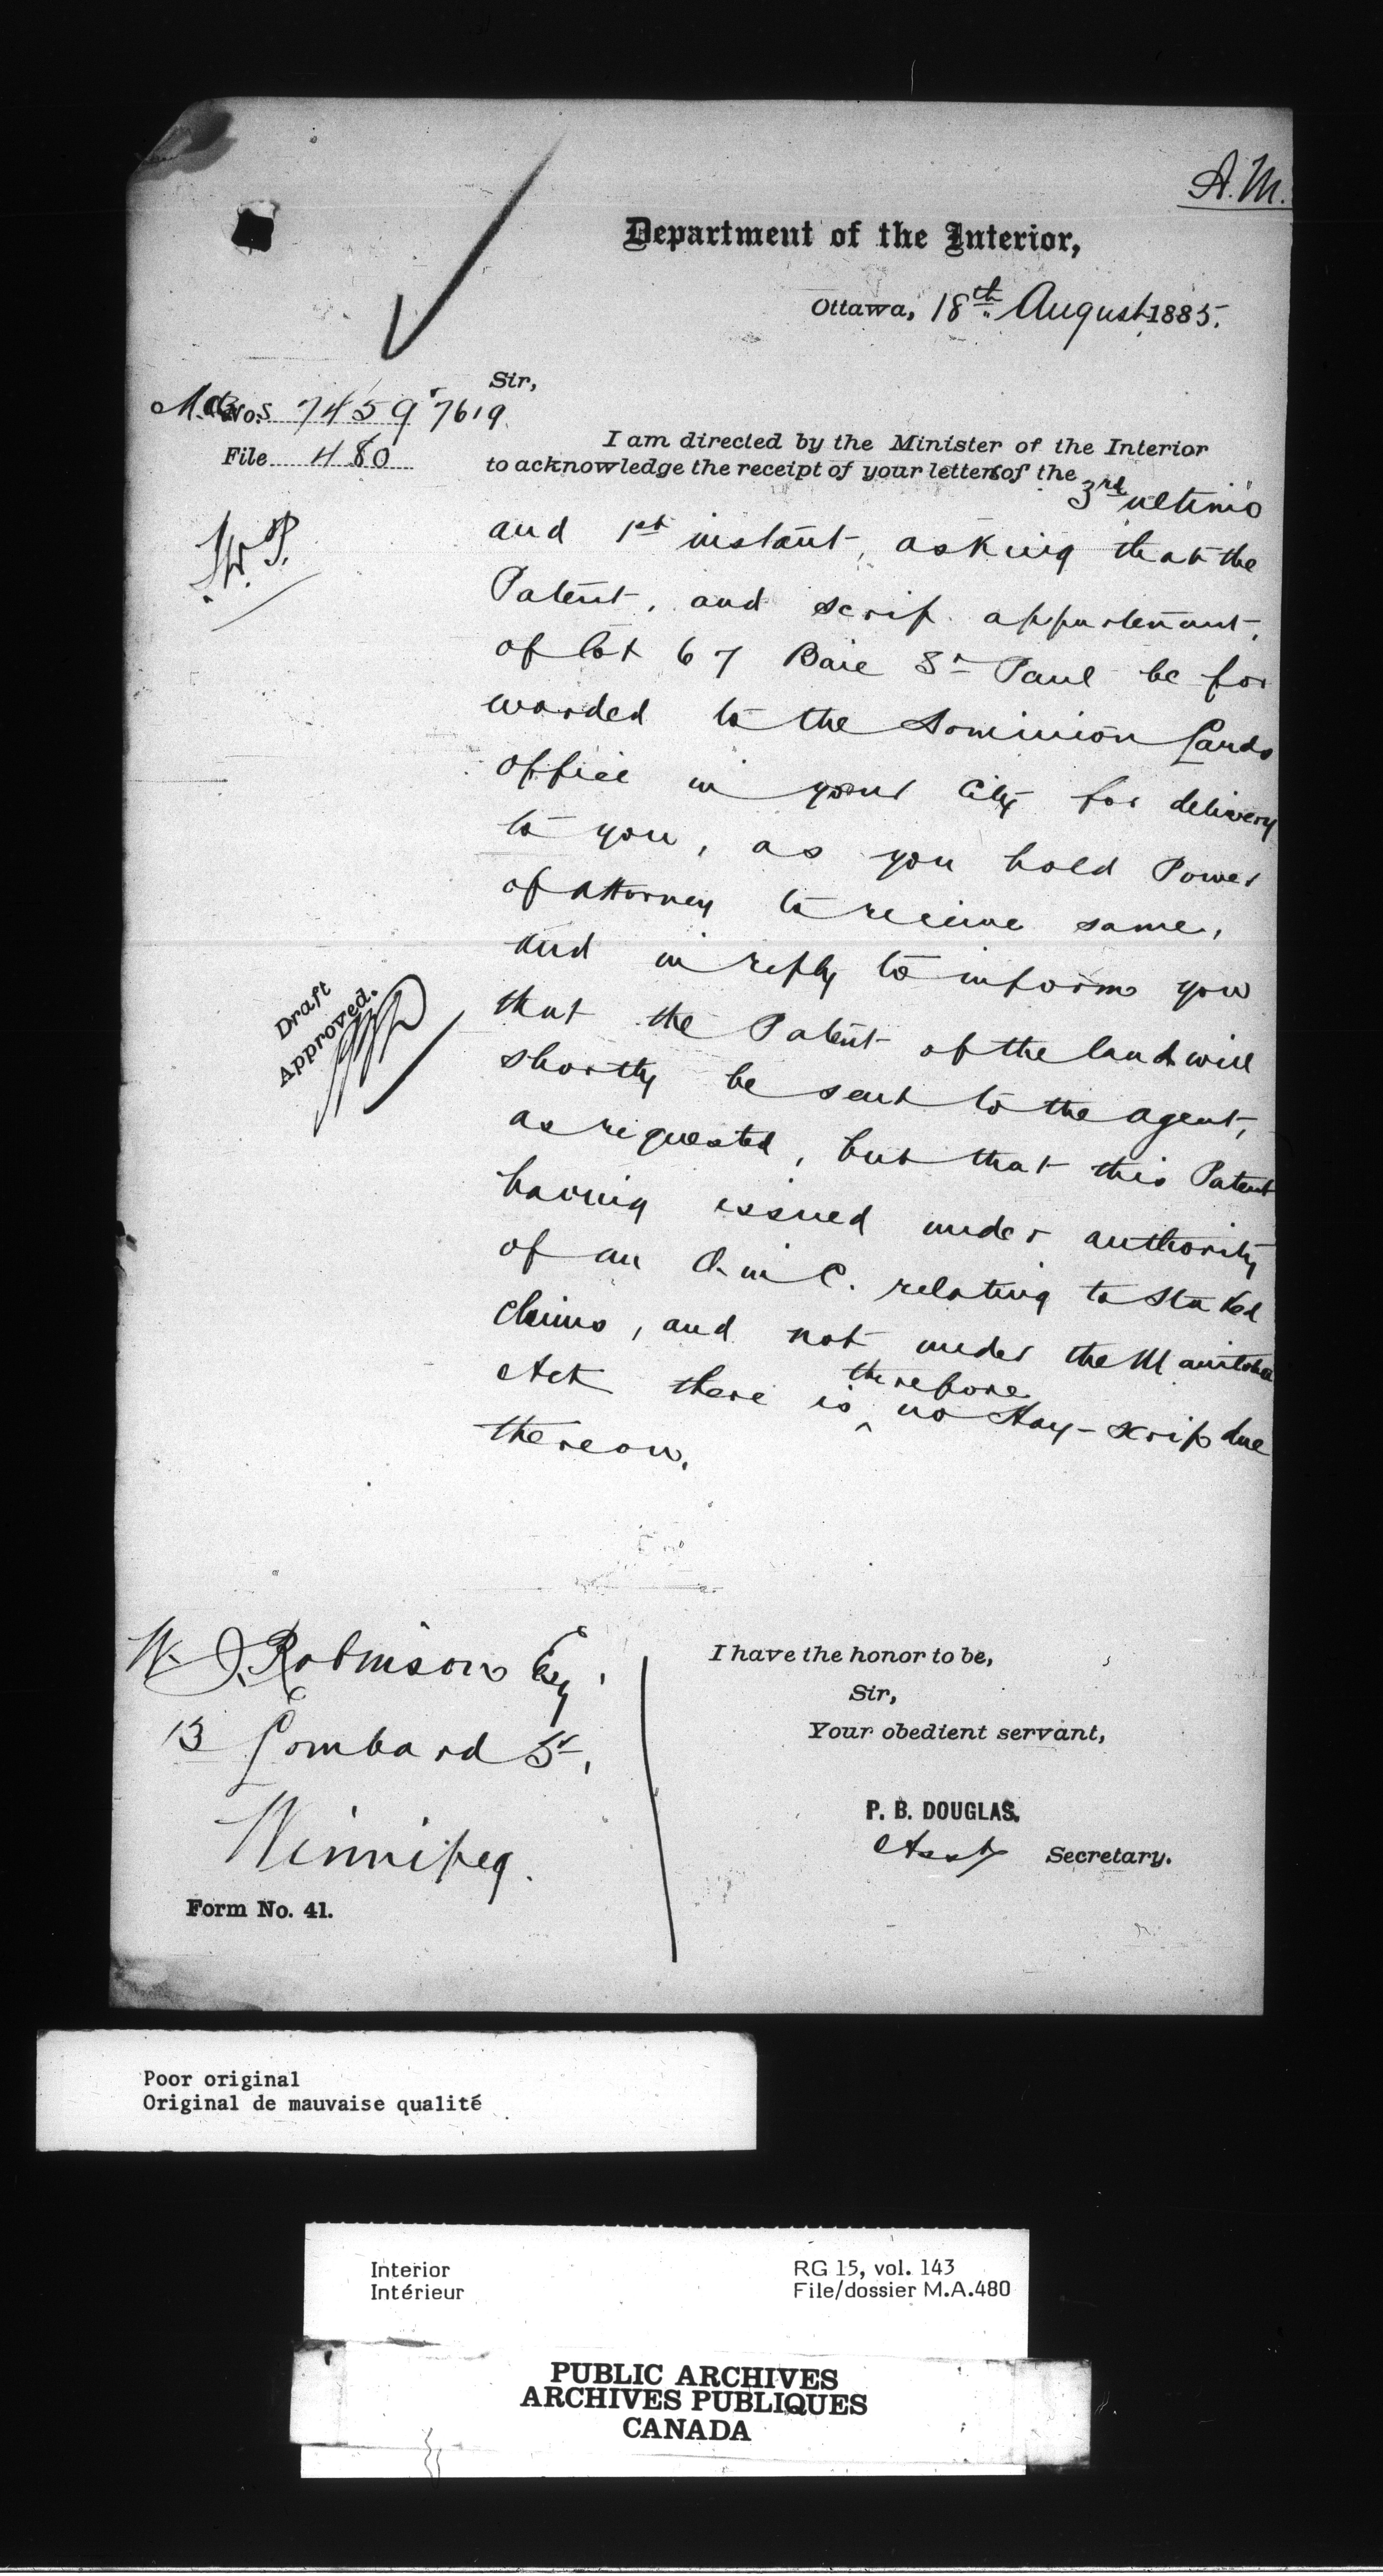 A.M.
Department of the Interior,
Ottawa, 18th August 1885.
Sir,
Nos. 7459 7619
File 480
I am directed by the Minister of the Interior
to acknowledge the receipt of your letters of the 3rd ultimo
and 1st instant, asking that the
Patent, and scrip appurtenant,
of lot 67 Baie St Paul be for
warded to the Dominion Lands
office in your City for delivery
to you, as you hold Power
of Attorney to receive same,
and in reply to inform you
that the Patent of the land will
shortly be sent to the agent,
as requested, but that this Patent
having issued under authority
of an O. in C. relating to Staked
claims, and not under the Manitoba
Act there is therefore no Hay-scrip due
thereon.
Draft
Approved.
W. J. Robinson Esq.
13 Lombard St,
Winnipeg.
Form No. 41.
I have the honor to be,
Sir,
Your obedient servant,
P. B. DOUGLAS.
Asst Secretary.
Poor original
Original de mauvaise qualité
Interior
Intérieur
RG 15, vol. 143
File/dossier M.A.480
PUBLIC ARCHIVES
ARCHIVES PUBLIQUES
CANADA